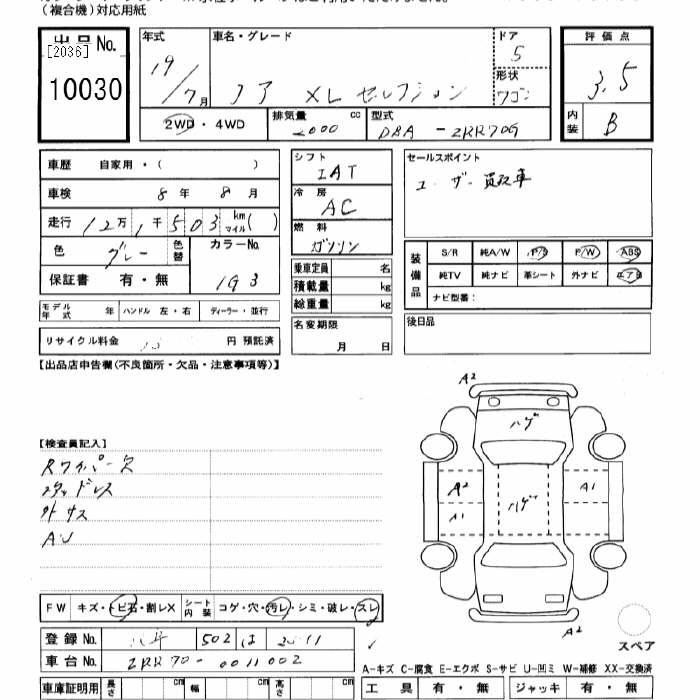 （複合機）対応用紙
出品No. [2036] 10030
年式 19/7月
車名・グレード ノア XL セレクション
ドア 5
形状 ワゴン
評価点 3.5
内装 B
2WD・4WD
排気量 2000 cc
型式 DBA-ZRR70G
車歴 自家用・（ ）
車検 8年 8月
走行 12万1千503 km マイル( )
色 グレー 色替
カラーNo. 1G3
保証書 有・無
シフト IAT
冷房 AC
燃料 ガソリン
乗車定員 名
積載量 kg
総重量 kg
名変期限 月 日
セールスポイント
ユーザー買取車
装備品 S/R 純A/W P/S P/W ABS
純TV 純ナビ 革シート 外ナビ エアB
ナビ型番：
後日品
モデル年式 年 ハンドル 左・右 ディーラー・並行
リサイクル料金 円 預託済
【出品店申告欄(不良箇所・欠品・注意事項等)】
A2
ハゲ
A2 ハゲ A1
A1
A2
【検査員記入】
Rワイパー欠
スタッドレス
外キズ
FW キズ・トビ石・割レX シート内装 コゲ・穴・汚レ・シミ・破レ・スレ
登録No. 502 は 2011
車台No. ZRR70-0011002
スペア
A-キズ C-腐食 E-エクボ S-サビ U-凹ミ W-補修 XX-交換済
車庫証明用 長さ cm 幅 cm 高さ cm
工具 有・無 ジャッキ 有・無